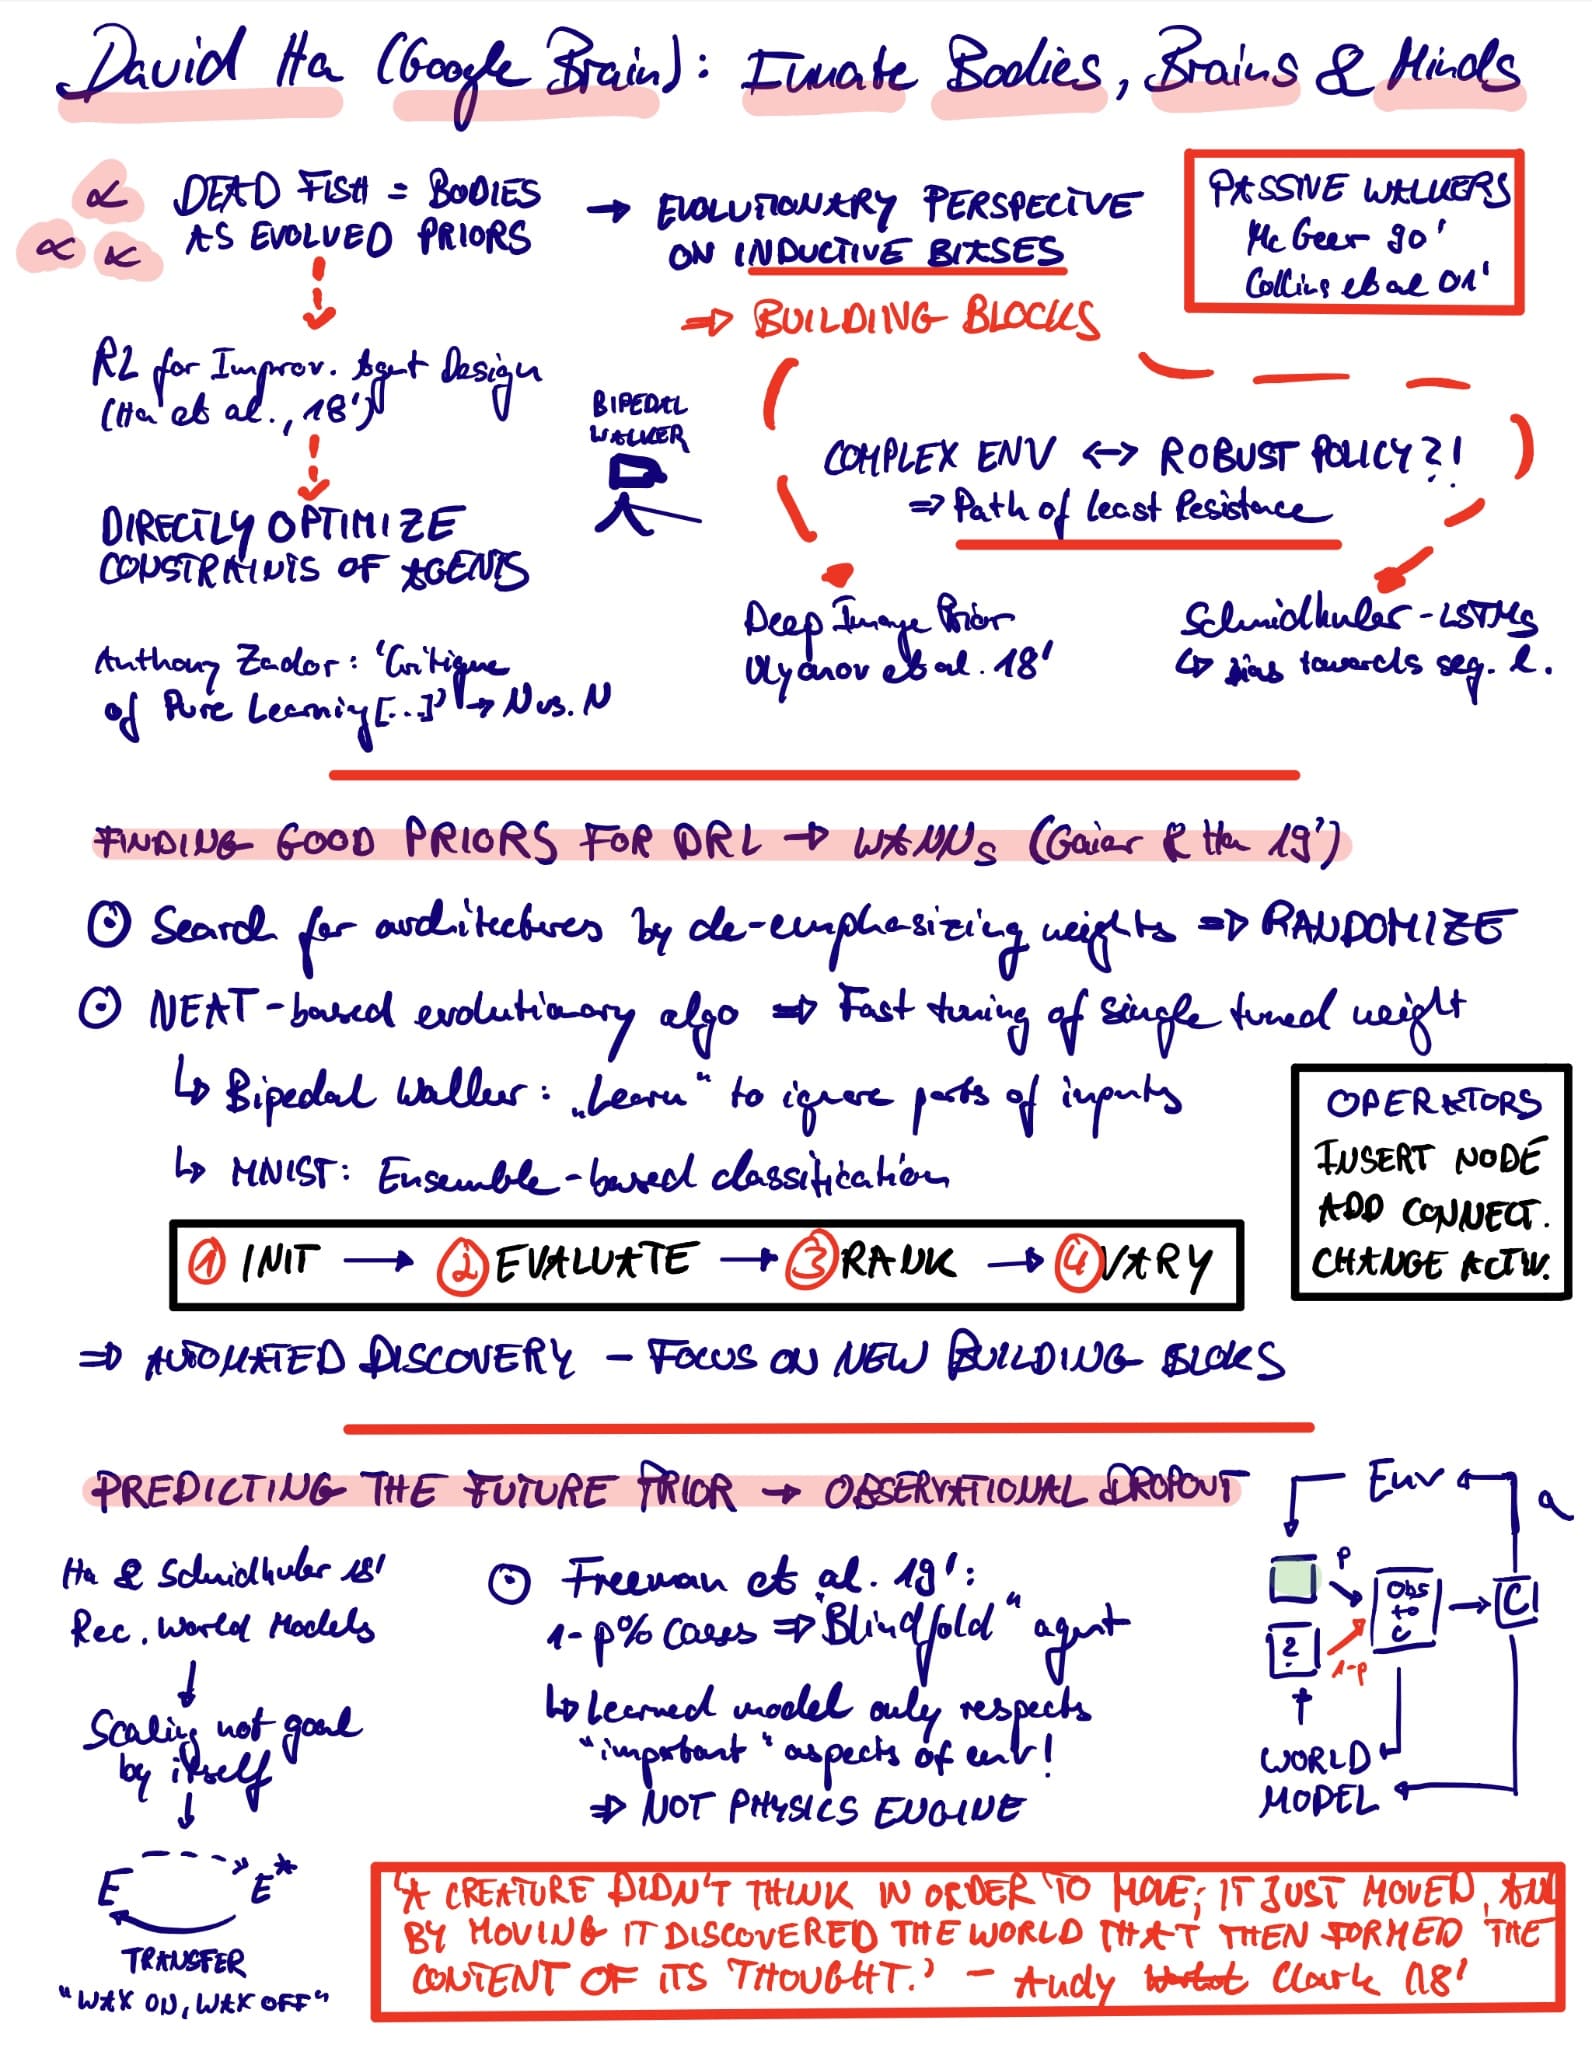 David Ha (Google Brain): Innate Bodies, Brains & Minds
DEAD FISH = BODIES
AS EVOLVED PRIORS
→ EVOLUTIONARY PERSPECTIVE
ON INDUCTIVE BIASES
⇒ BUILDING BLOCKS
PASSIVE WALKERS
Mc Geer 90'
Collins et al 01'
RL for Improv. Agent Design
(Ha et al., 18')
DIRECTLY OPTIMIZE
CONSTRAINTS OF AGENTS
BIPEDAL
WALKER
COMPLEX ENV ↔ ROBUST POLICY?!
⇒ Path of Least Resistance
Anthony Zador: 'Critique
of Pure Learning [...]' → N vs. N
Deep Image Prior
Ulyanov et al. 18'
Schmidhuber - LSTMs
↳ bias towards seq. l.
FINDING GOOD PRIORS FOR DRL → WANNs (Gaier & Ha 19')
⊙ Search for architectures by de-emphasizing weights ⇒ RANDOMIZE
⊙ NEAT-based evolutionary algo ⇒ Fast tuning of single tuned weight
↳ Bipedal Walker: „Learn“ to ignore parts of inputs
↳ MNIST: Ensemble-based classification
OPERATORS
INSERT NODE
ADD CONNECT.
CHANGE ACTIV.
① INIT → ② EVALUATE → ③ RANK → ④ VARY
⇒ AUTOMATED DISCOVERY - FOCUS ON NEW BUILDING BLOKS
PREDICTING THE FUTURE PRIOR → OBSERVATIONAL DROPOUT
Ha & Schmidhuber 18'
Rec. World Models
↓
Scaling not goal
by itself
↓
E E*
TRANSFER
"WAX ON, WAX OFF"
⊙ Freeman et al. 19':
1-p% Cases ⇒ "Blindfold" agent
↳ Learned model only respects
"important" aspects of env!
⇒ NOT PHYSICS ENGINE
Env
a
p
Obs
to
C
C
?
1-p
↑
WORLD
MODEL
'A CREATURE DIDN'T THINK IN ORDER TO MOVE; IT JUST MOVED, AND
BY MOVING IT DISCOVERED THE WORLD THAT THEN FORMED THE
CONTENT OF ITS THOUGHT.' - Andy Clark 18'